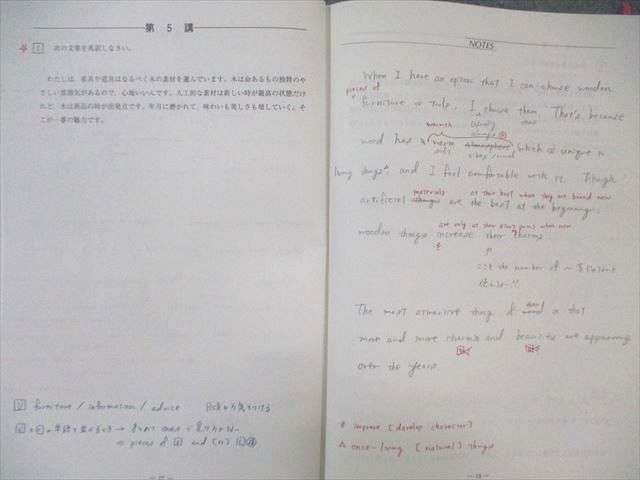 第 5 講
1 次の文章を英訳しなさい。
わたしは、家具や道具はなるべく木の素材を選んでいます。木は命あるもの独特のや
さしい雰囲気があるので、心地いいんです。人工的な素材は新しい時が最高の状態だけ
れど、木は新品の時が出発点です。年月に磨かれて、味わいも美しさも増していく。そ
こが一番の魅力です。
U furniture / information / advice
pieces of and (or)
— 17 —
NOTES
When I have an option that I can choose wooden
pieces of
furniture or tools, I choose them. That's because
usually
always
ones
warmth
wood has warm atmosphere, which is unique to
soft
vibes / mood
living things, and I feel comfortable with it. Though
materials at their best when they are brand new
artificial things are the best at the beginning,
are only at their starting points when new
wooden things increase their charms.
the number of ~
The most attractive thing of wood is that
more and more charms and beauties are appearing
over the years.
* improve [develop character]
△ once-living [natural] things
— 18 —